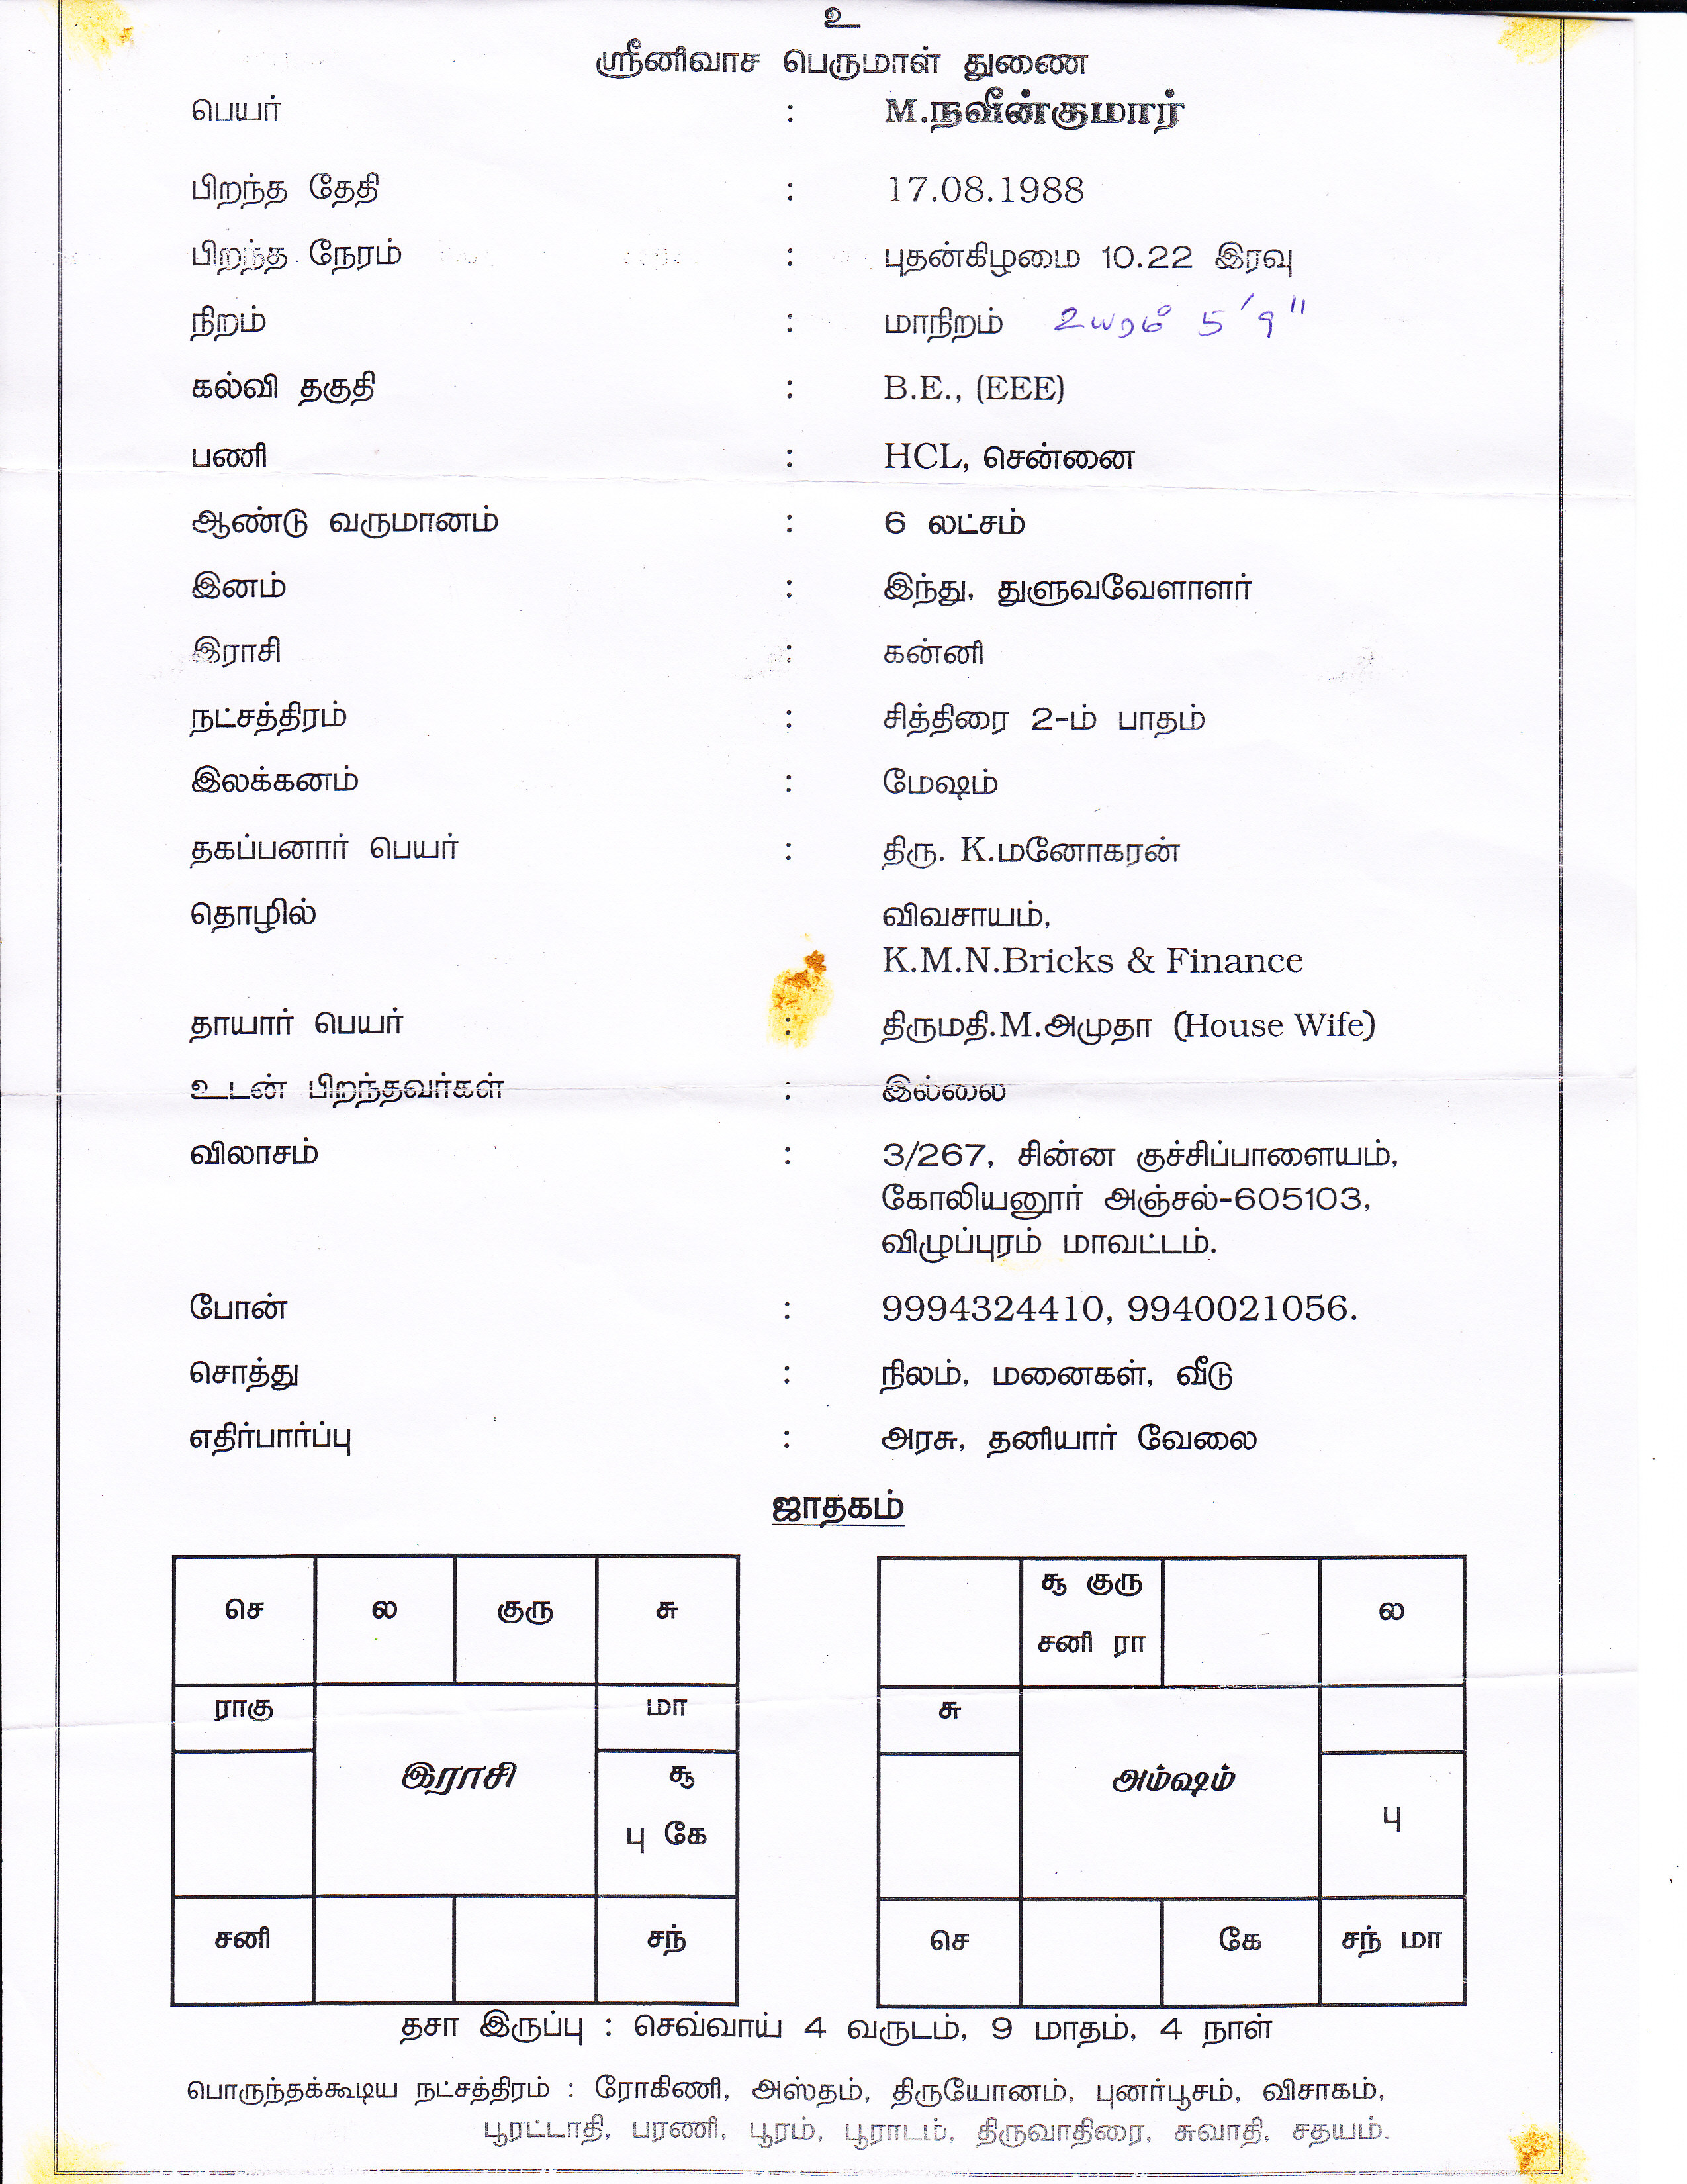 உ
ஸ்ரீனிவாச பெருமாள் துணை
பெயர் : M.நவீன்குமார்
பிறந்த தேதி : 17.08.1988
பிறந்த நேரம் : புதன்கிழமை 10.22 இரவு
நிறம் : மாநிறம் உயரம் 5'9"
கல்வி தகுதி : B.E., (EEE)
பணி : HCL, சென்னை
ஆண்டு வருமானம் : 6 லட்சம்
இனம் : இந்து, துளுவவேளாளர்
இராசி : கன்னி
நட்சத்திரம் : சித்திரை 2-ம் பாதம்
இலக்கனம் : மேஷம்
தகப்பனார் பெயர் : திரு. K.மனோகரன்
தொழில் விவசாயம்,
K.M.N.Bricks & Finance
தாயார் பெயர் : திருமதி.M.அமுதா (House Wife)
உடன் பிறந்தவர்கள் : இல்லை
விலாசம் : 3/267, சின்ன குச்சிப்பாளையம்,
கோலியனூர் அஞ்சல்-605103,
விழுப்புரம் மாவட்டம்.
போன் : 9994324410, 9940021056.
சொத்து : நிலம், மனைகள், வீடு
எதிர்பார்ப்பு : அரசு, தனியார் வேலை
ஜாதகம்
செ ல குரு சு
ராகு மா
இராசி
சூ
பு கே
சனி சந்
சூ குரு
சனி ரா
ல
சு
அம்ஷம்
பு
செ கே சந் மா
தசா இருப்பு : செவ்வாய் 4 வருடம், 9 மாதம், 4 நாள்
பொருந்தக்கூடிய நட்சத்திரம் : ரோகிணி, அஸ்தம், திருயோனம், புனர்பூசம், விசாகம்,
பூரட்டாதி, பரணி, பூரம், பூராடம், திருவாதிரை, சுவாதி, சதயம்.